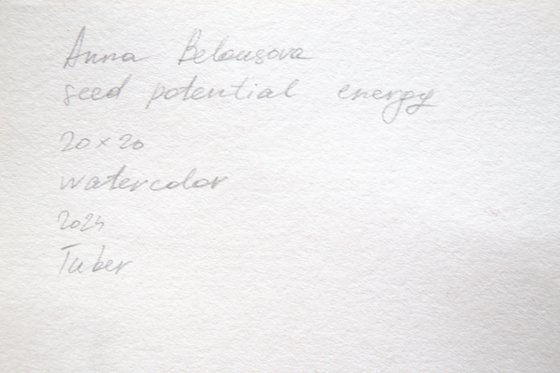 Anna Belousova
seed potential energy
20 × 20
watercolor
2024
Tuber